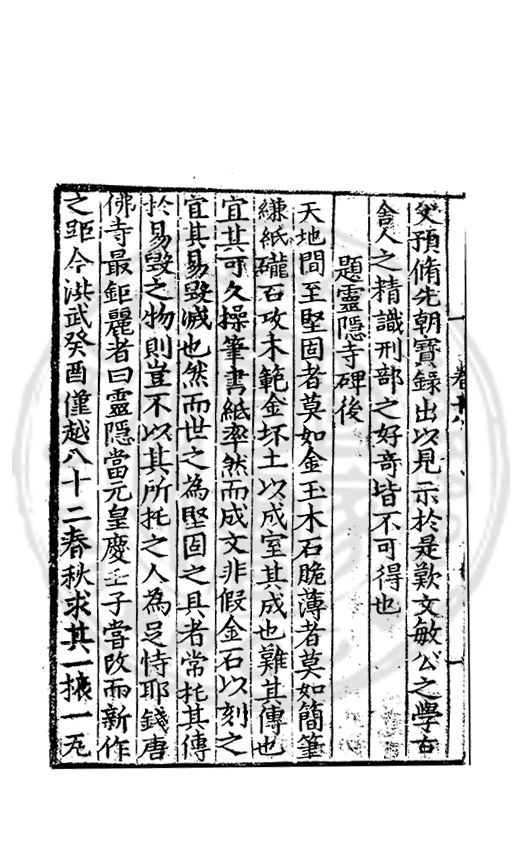 卷十八
父預脩先朝實錄出以見示於是歎文敏公之學古
舍人之精識刑部之好奇皆不可得也
題靈隱寺碑後
天地間至堅固者莫如金玉木石脆薄者莫如簡筆
縑紙礲石攻木範金坏土以成室其成也難其傳也
宜其可久操筆書紙率然而成文非假金石以刻之
宜其易毀滅也然而世之為堅固之具者常托其傳
於易毀之物則豈不以其所托之人為足恃耶錢唐
佛寺最鉅麗者曰靈隱當元皇慶壬子嘗改而新作
之距今洪武癸酉僅越八十二春秋求其一榱一瓦